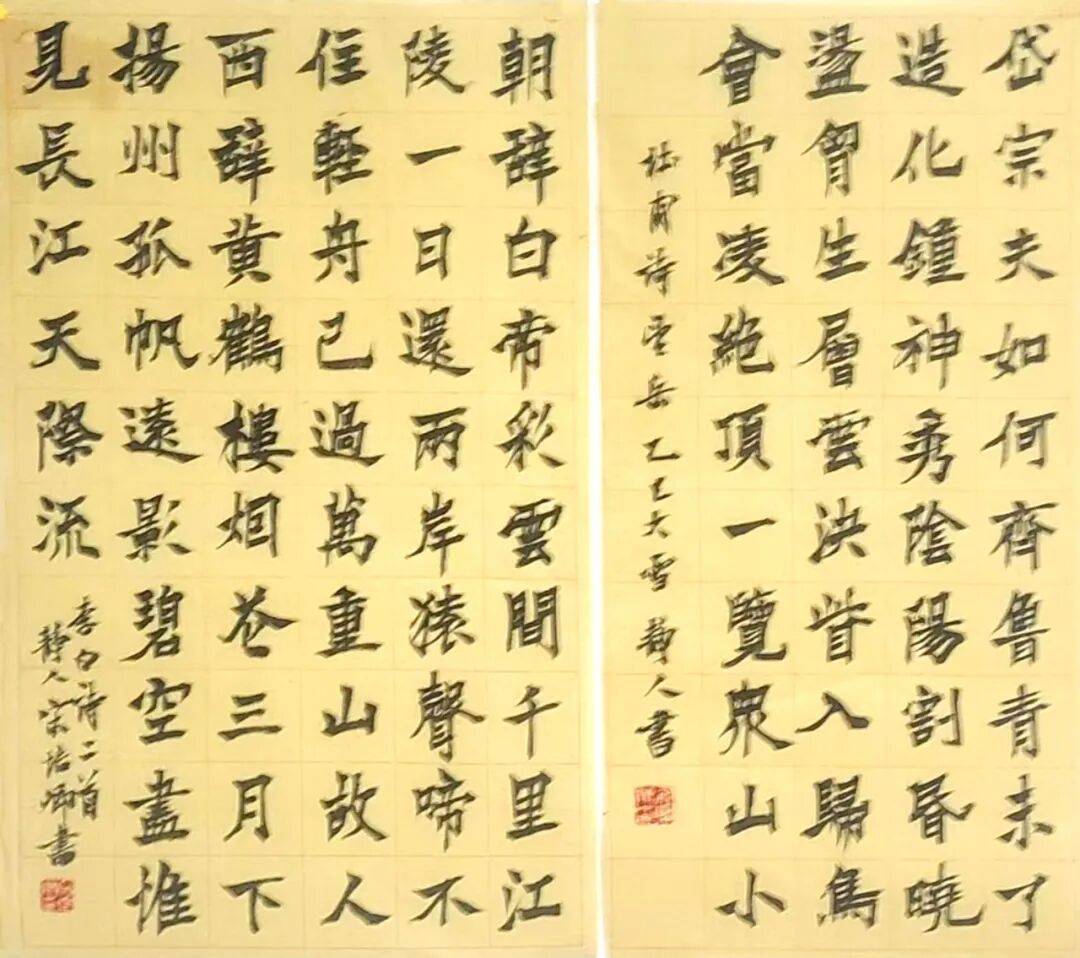 岱宗夫如何齊魯青未了
造化鐘神秀陰陽割昏曉
盪胷生層雲決眥入歸鳥
會當凌絕頂一覽眾山小
杜甫詩望岳乙巳大雪靜人書
朝辭白帝彩雲間千里江
陵一日還兩岸猿聲啼不
住輕舟已過萬重山故人
西辭黃鶴樓烟花三月下
揚州孤帆遠影碧空盡惟
見長江天際流
李白詩二首
靜人宗書